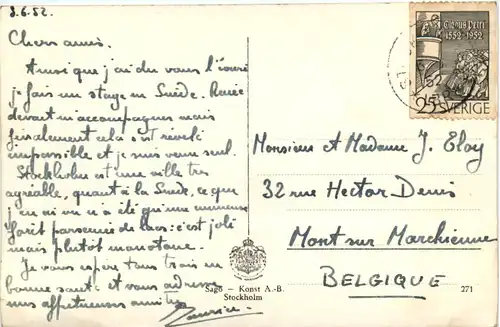 3.6.52.
Chers amis.
Ainsi que j'ai dû vous l'écrire
je fais un stage en Suède. Renée
devait m'accompagner mais
finalement cela s'est révélé
impossible et je suis venu seul.
Stockholm est une ville très
agréable, quant à la Suède, ce que
j'en ai vu n'a été qu'une immense
forêt parsemée de lacs: c'est joli
mais plutôt monotone.
Je vous espère tous trois en
bonne santé et vous adresse
mes affectueuses amitiés
Maurice.
Olavus Petri
1552-1952
25 SVERIGE
Monsieur et Madame J. Eloy
32 rue Hector Denis
Mont sur Marchienne
BELGIQUE
Sago – Konst A.-B.
Stockholm
271